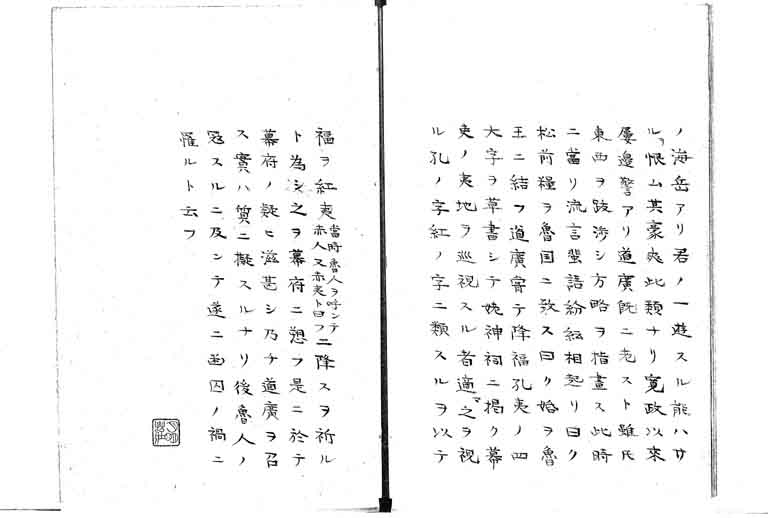 ノ海岳アリ君ノ一遊スル能ハサ
ルヲ恨ム其豪爽此類ナリ寛政以來
屡邊警アリ道廣既ニ老スト雖𪜈
東西ヲ跋渉シ方略ヲ指畫ス此時
ニ當リ流言蜚語紛紜相起リ曰ク
松前糧ヲ魯国ニ致ス曰ク始ヲ魯
王ニ結フ道廣嘗テ降福孔夷ノ四
大字ヲ草書シテ姥神祠ニ掲ク幕
吏ノ夷地ヲ巡視スル者適マ之ヲ視
ル孔ノ字紅ノ字ニ類スルヲ以テ
福ヲ紅夷當時魯人ヲ呼ンテ赤人又赤夷ト曰フニ降スヲ祈ル
ト為シ之ヲ幕府ニ愬フ是ニ於テ
幕府ノ疑ヒ滋甚シ乃チ道廣ヲ召
ス實ハ質ニ擬スルナリ後魯人ノ
冦スルニ及ンテ遂ニ幽囚ノ禍ニ
罹ルト云フ